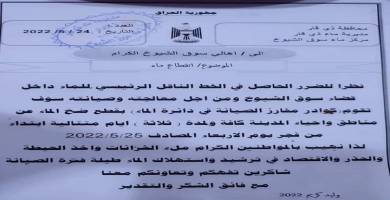 جمهورية العراق
محافظة ذي قار
مديرية ماء ذي قار
مركز ماء سوق الشيوخ
العدد /
التاريخ / 24 / 5 / 2022
الى / اهالي سوق الشيوخ الكرام
الموضوع / انقطاع ماء
نظرا للضرر الحاصل في الخط الناقل الرئيسي للماء داخل
قضاء سوق الشيوخ ومن اجل معالجته وصيانته سوف
تقوم كوادر مفارز الصيانة في دائرة الماء بقطع ضخ الماء عن
مناطق واحياء المدينة كافة ولمدة ( ثلاثة ) ايام متتالية ابتداء
من فجر يوم الاربعاء المصادف 2022/5/25
لذا نهيب بالمواطنين الكرام ملء الخزانات واخذ الحيطة
والحذر والاقتصاد في ترشيد واستهلاك الماء طيلة فترة الصيانة
شاكرين تفهمكم وتعاونكم معنا
مع فائق الشكر والتقدير
2022